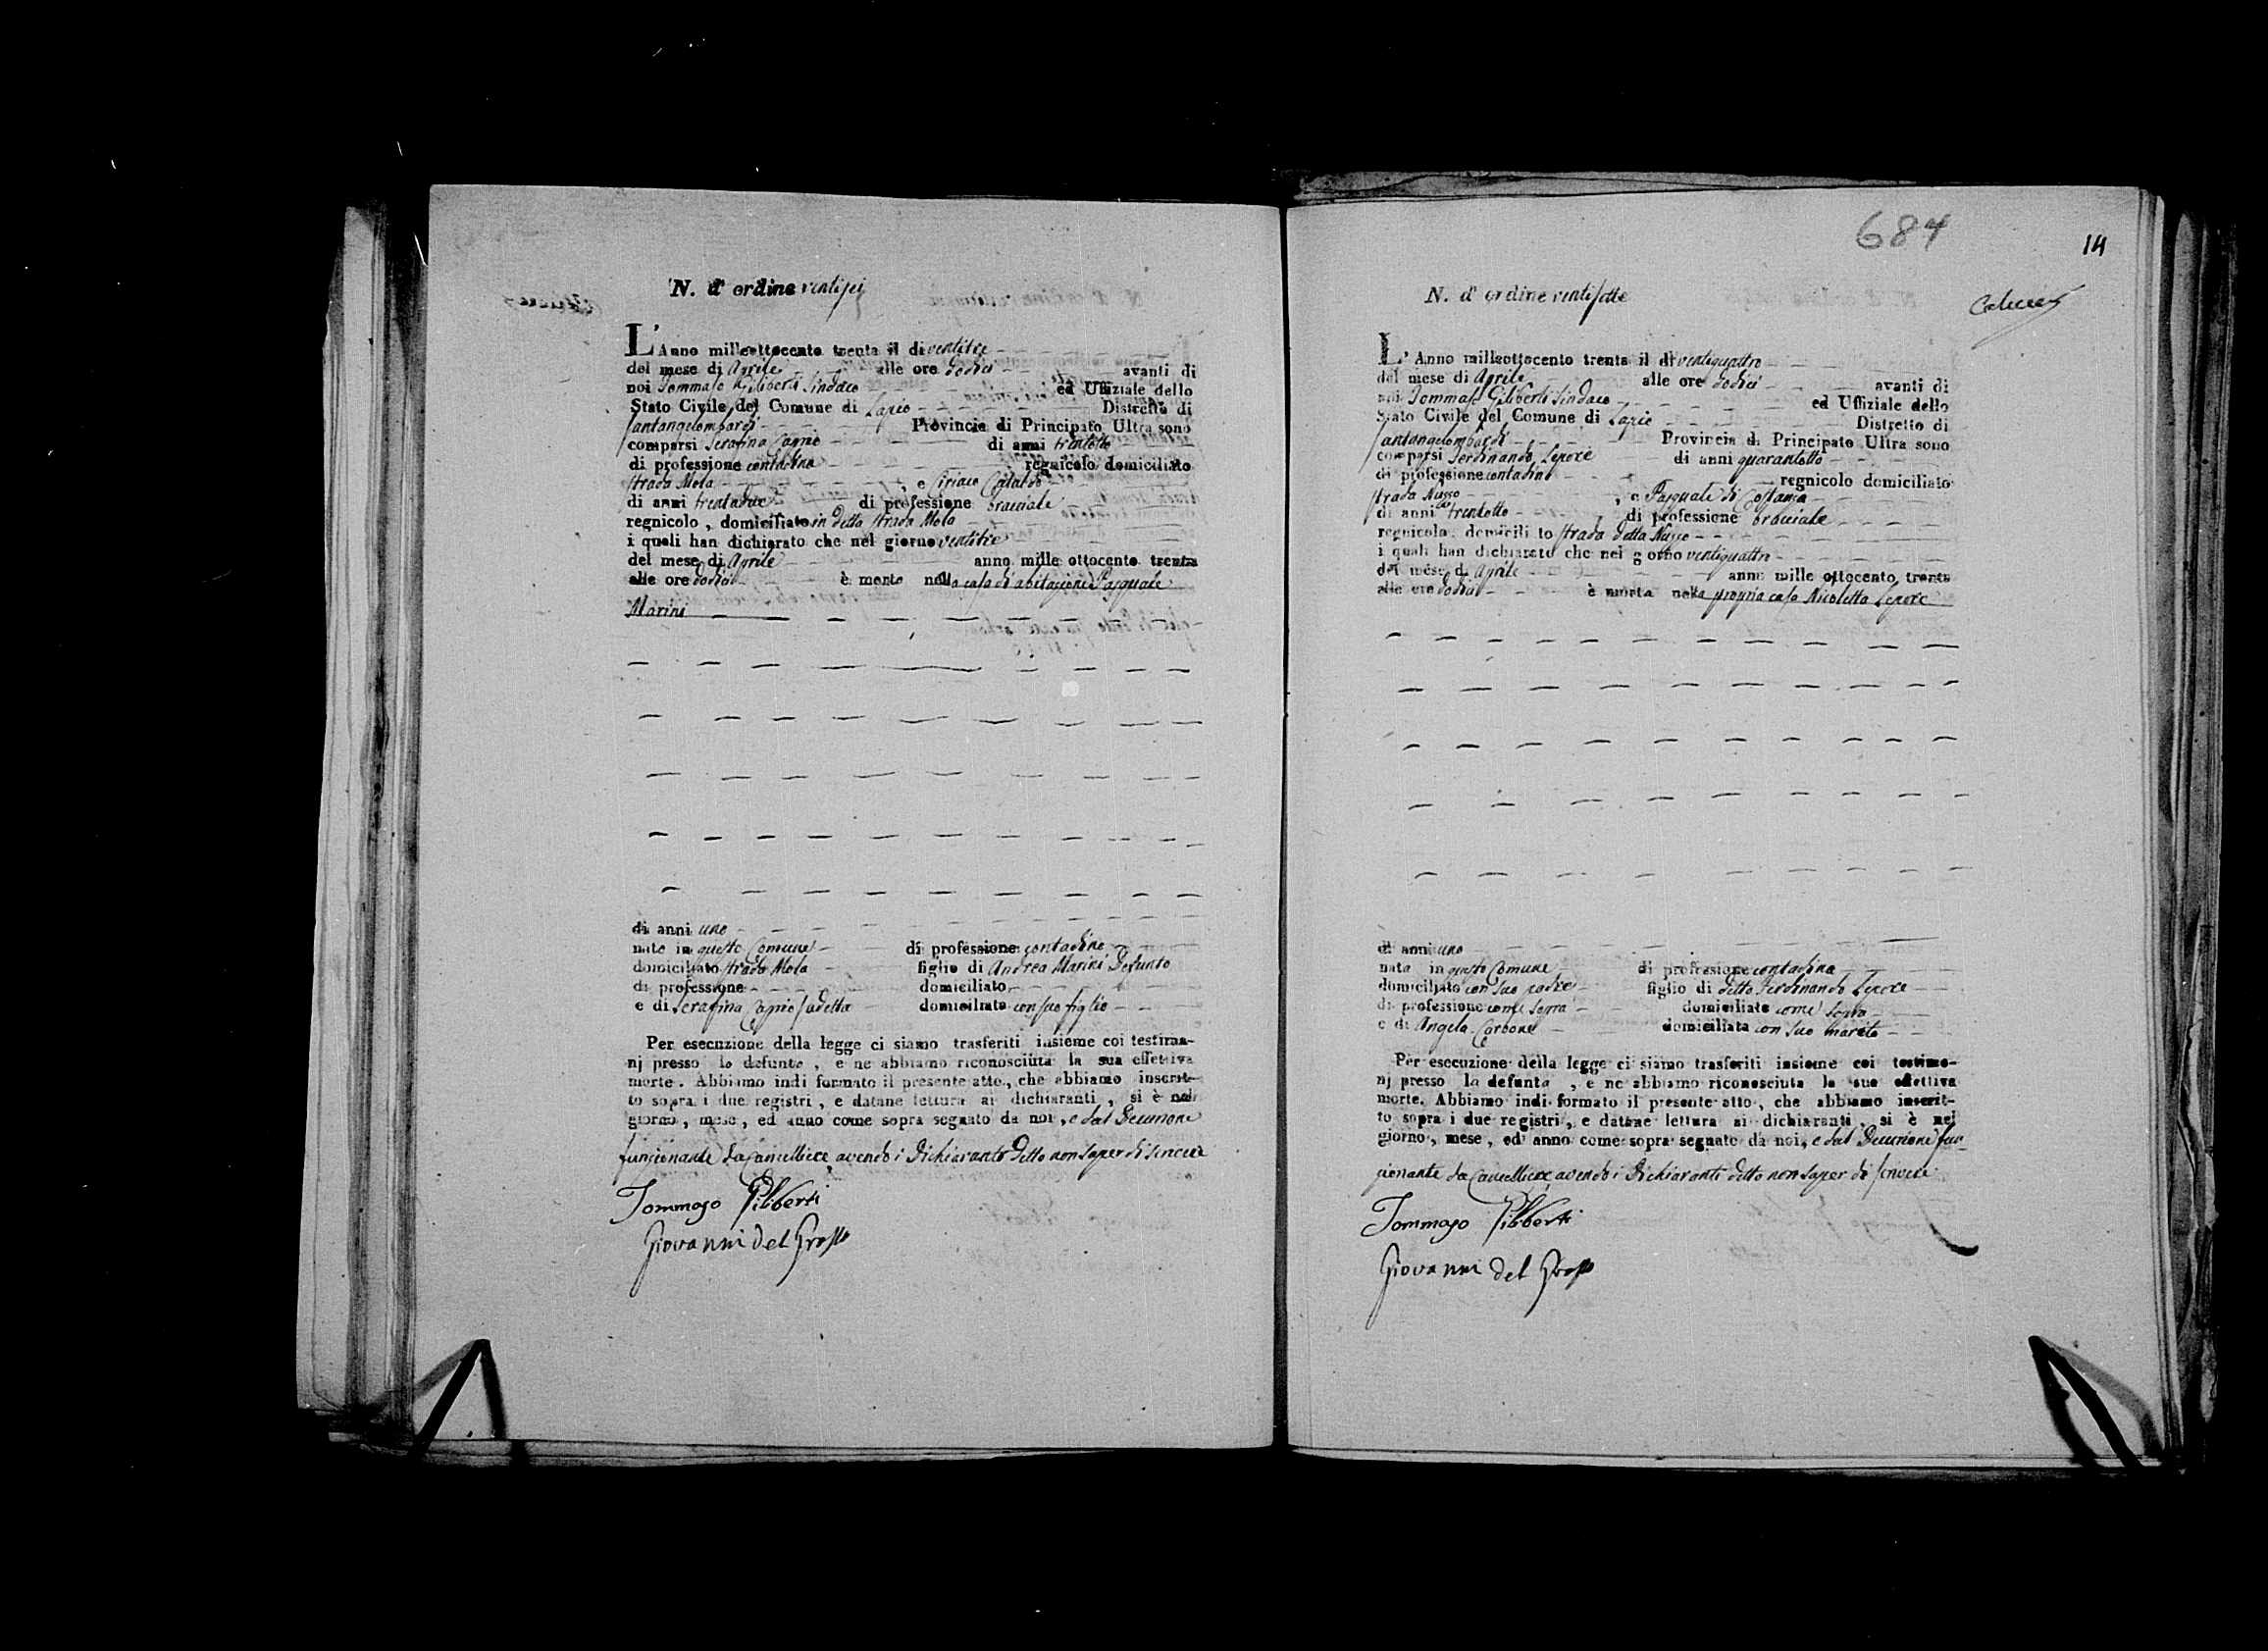 N. d' ordine ventisei
L' Anno milleottocento trenta il di ventitre
del mese di Aprile alle ore dodici avanti di
noi Tommaso Giliberti Sindaco ed Uffiziale dello
Stato Civile del Comune di Lapio Distretto di
Santangelombardi Provincia di Principato Ultra sono
comparsi Serafina Carpio di anni trentotto
di professione contadina regnicolo domiciliato
strada Mola , e Ciriaco Cataldo
di anni trentadue di professione bracciale
regnicolo , domiciliato in detta strada Mola
i quali han dichiarato che nel giorno ventitre
del mese di Aprile anno mille ottocento trenta
alle ore dodici è morto nella casa di abitazione Pasquale
Marini
di anni uno
nato in questo Comune di professione contadino
domiciliato strada Mola figlio di Andrea Marini Defunto
di professione domiciliato
e di Serafina Carpio sudetta domiciliata con suo figlio
Per esecuzione della legge ci siamo trasferiti insieme coi testimo-
nj presso lo defunto , e ne abbiamo riconosciuta la sua effettiva
morte . Abbiamo indi formato il presente atto , che abbiamo inscrit-
to sopra i due registri , e datane lettura ai dichiaranti , si è nel
giorno , mese , ed anno come sopra segnato da noi , e dal Decurione
funzionante da Cancelliere avendo i Dichiaranti detto non saper di scrivere
Tommaso Giliberti
Giovanni del Grosso
684
14
N. d' ordine ventisette
L' Anno milleottocento trenta il di ventiquattro
del mese di Aprile alle ore dodici avanti di
noi Tommaso Giliberti Sindaco ed Uffiziale dello
Stato Civile del Comune di Lapio Distretto di
Santangelombardi Provincia di Principato Ultra sono
comparsi Ferdinando Lepore di anni quarantotto
di professione contadino regnicolo domiciliato
strada Nusco , e Pasquale di Costanza
di anni trentotto di professione bracciale
regnicolo , domiciliato strada detta Nusco
i quali han dichiarato che nel giorno ventiquattro
del mese di Aprile anno mille ottocento trenta
alle ore dodici è morta nella propria casa Nicoletta Lepore
di anni uno
nata in questo Comune di professione contadina
domiciliato con suo padre figlio di detto Ferdinando Lepore
di professione come sopra domiciliato come sopra
e di Angela Carbone domiciliata con suo marito
Per esecuzione della legge ci siamo trasferiti insieme coi testimo-
nj presso la defunta , e ne abbiamo riconosciuta la sua effettiva
morte. Abbiamo indi formato il presente atto , che abbiamo inscrit-
to sopra i due registri , e datane lettura ai dichiaranti , si è nel
giorno , mese , ed anno come sopra segnato da noi , e dal Decurione fun-
zionante da Cancelliere avendo i Dichiaranti detto non saper di scrivere
Tommaso Giliberti
Giovanni del Grosso